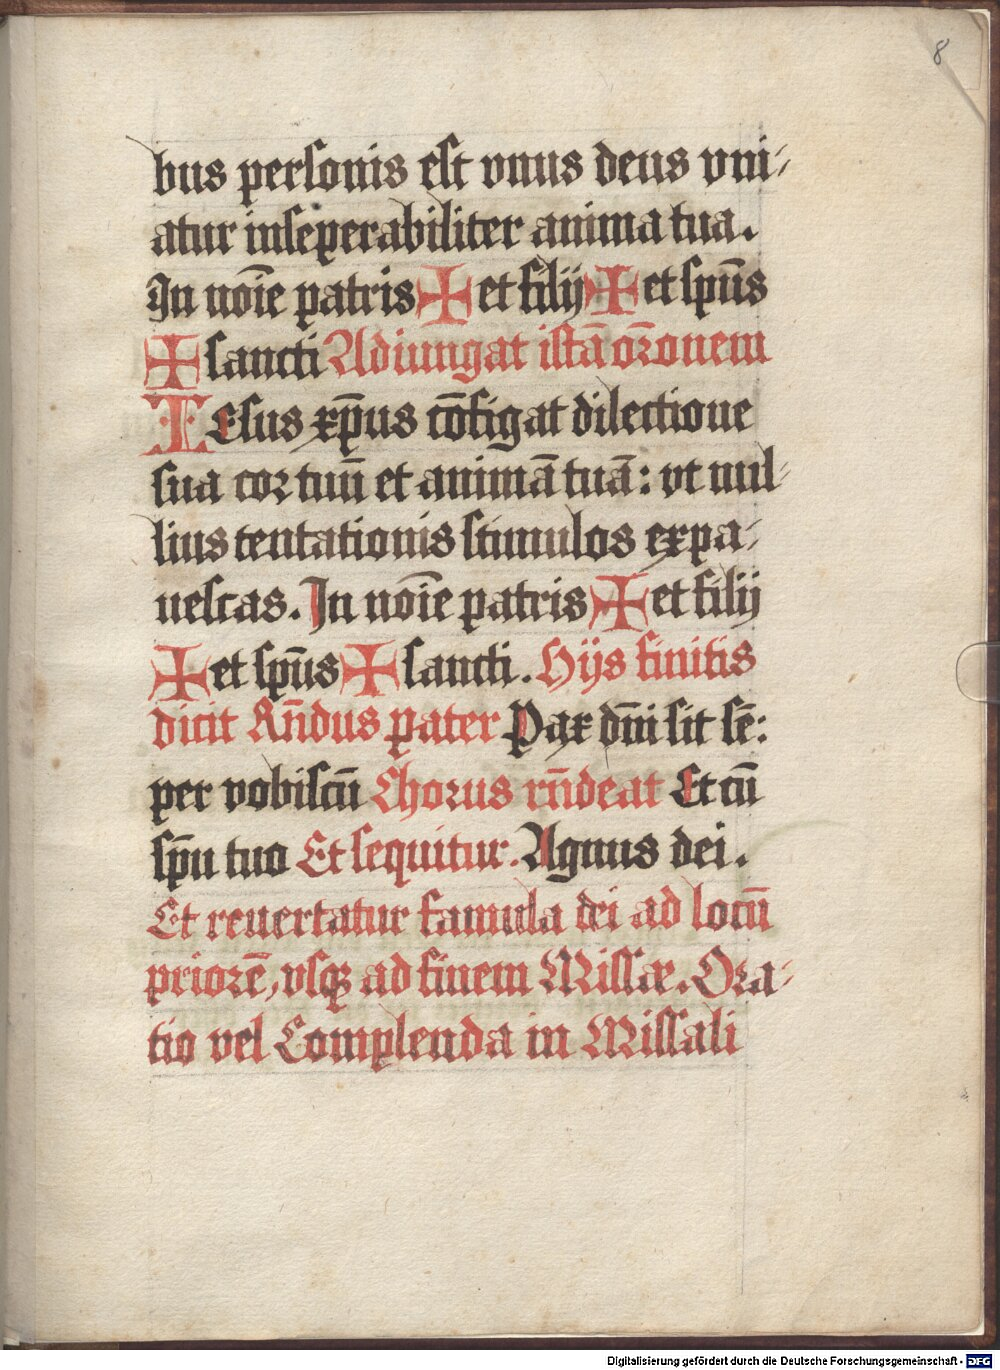 8
bus personis est vnus deus vni-
atur inseperabiliter anima tua.
In nōīe patris ✠ et filij ✠ et spūs
✠ sancti Adiungat istā orōnem
IEsus xp̄us cōfigat dilectione
sua cor tuū et animā tuā: vt nul-
lius tentationis stimulos expa-
uescas. In nōīe patris ✠ et filij
✠ et spūs ✠ sancti. Hijs finitis
dicit Rn̄dus pater Pax dn̄i sit sē:
per vobiscū Chorus rn̄deat Et cū
sp̄u tuo Et sequitur. Agnus dei.
Et reuertatur famula dei ad locū
priorē, vsqꝫ ad finem Missæ. Ora-
tio vel Complenda in Missali
Digitalisierung gefördert durch die Deutsche Forschungsgemeinschaft - DFG